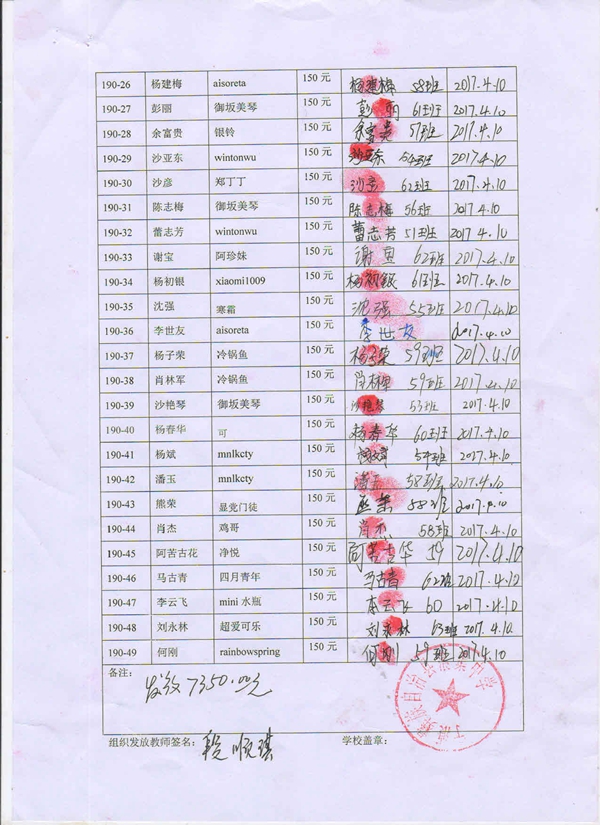 190-26 杨建梅 aisoreta 150 元 杨建梅 58班 2017.4.10
190-27 彭丽 御坂美琴 150 元 彭丽 61班 2017.4.10
190-28 余富贵 银铃 150 元 余富贵 57班 2017.4.10
190-29 沙亚东 wintonwu 150 元 沙亚东 54班 2017.4.10
190-30 沙彦 郑丁丁 150 元 沙彦 62班 2017.4.10
190-31 陈志梅 御坂美琴 150 元 陈志梅 56班 2017.4.10
190-32 蕾志芳 wintonwu 150 元 蕾志芳 51班 2017.4.10
190-33 谢宝 阿珍妹 150 元 谢宝 62班 2017.4.10
190-34 杨初银 xiaomi1009 150 元 杨初银 61班 2017.4.10
190-35 沈强 寒霜 150 元 沈强 55班 2017.4.10
190-36 李世友 aisoreta 150 元 李世友 2017.4.10
190-37 杨子荣 冷锅鱼 150 元 杨子荣 59班 2017.4.10
190-38 肖林军 冷锅鱼 150 元 肖林军 59班 2017.4.10
190-39 沙艳琴 御坂美琴 150 元 沙艳琴 53班 2017.4.10
190-40 杨春华 可 150 元 杨春华 60班 2017.4.10
190-41 杨斌 mnlkcty 150 元 杨斌 54班 2017.4.10
190-42 潘玉 mnlkcty 150 元 潘玉 58班 2017.4.10
190-43 熊荣 显党门徒 150 元 熊荣 58班 2017.4.10
190-44 肖杰 鸡哥 150 元 肖杰 58班 2017.4.10
190-45 阿苦古花 净悦 150 元 59 2017.4.10
190-46 马古青 四月青年 150 元 马古青 62班 2017.4.10
190-47 李云飞 mini 水瓶 150 元 李云飞 60 2017.4.10
190-48 刘永林 超爱可乐 150 元 刘永林 63班 2017.4.10
190-49 何刚 rainbowspring 150 元 何刚 59班 2017.4.10
备注：
发放7350.00元
组织发放教师签名： 段顺琪 学校盖章：